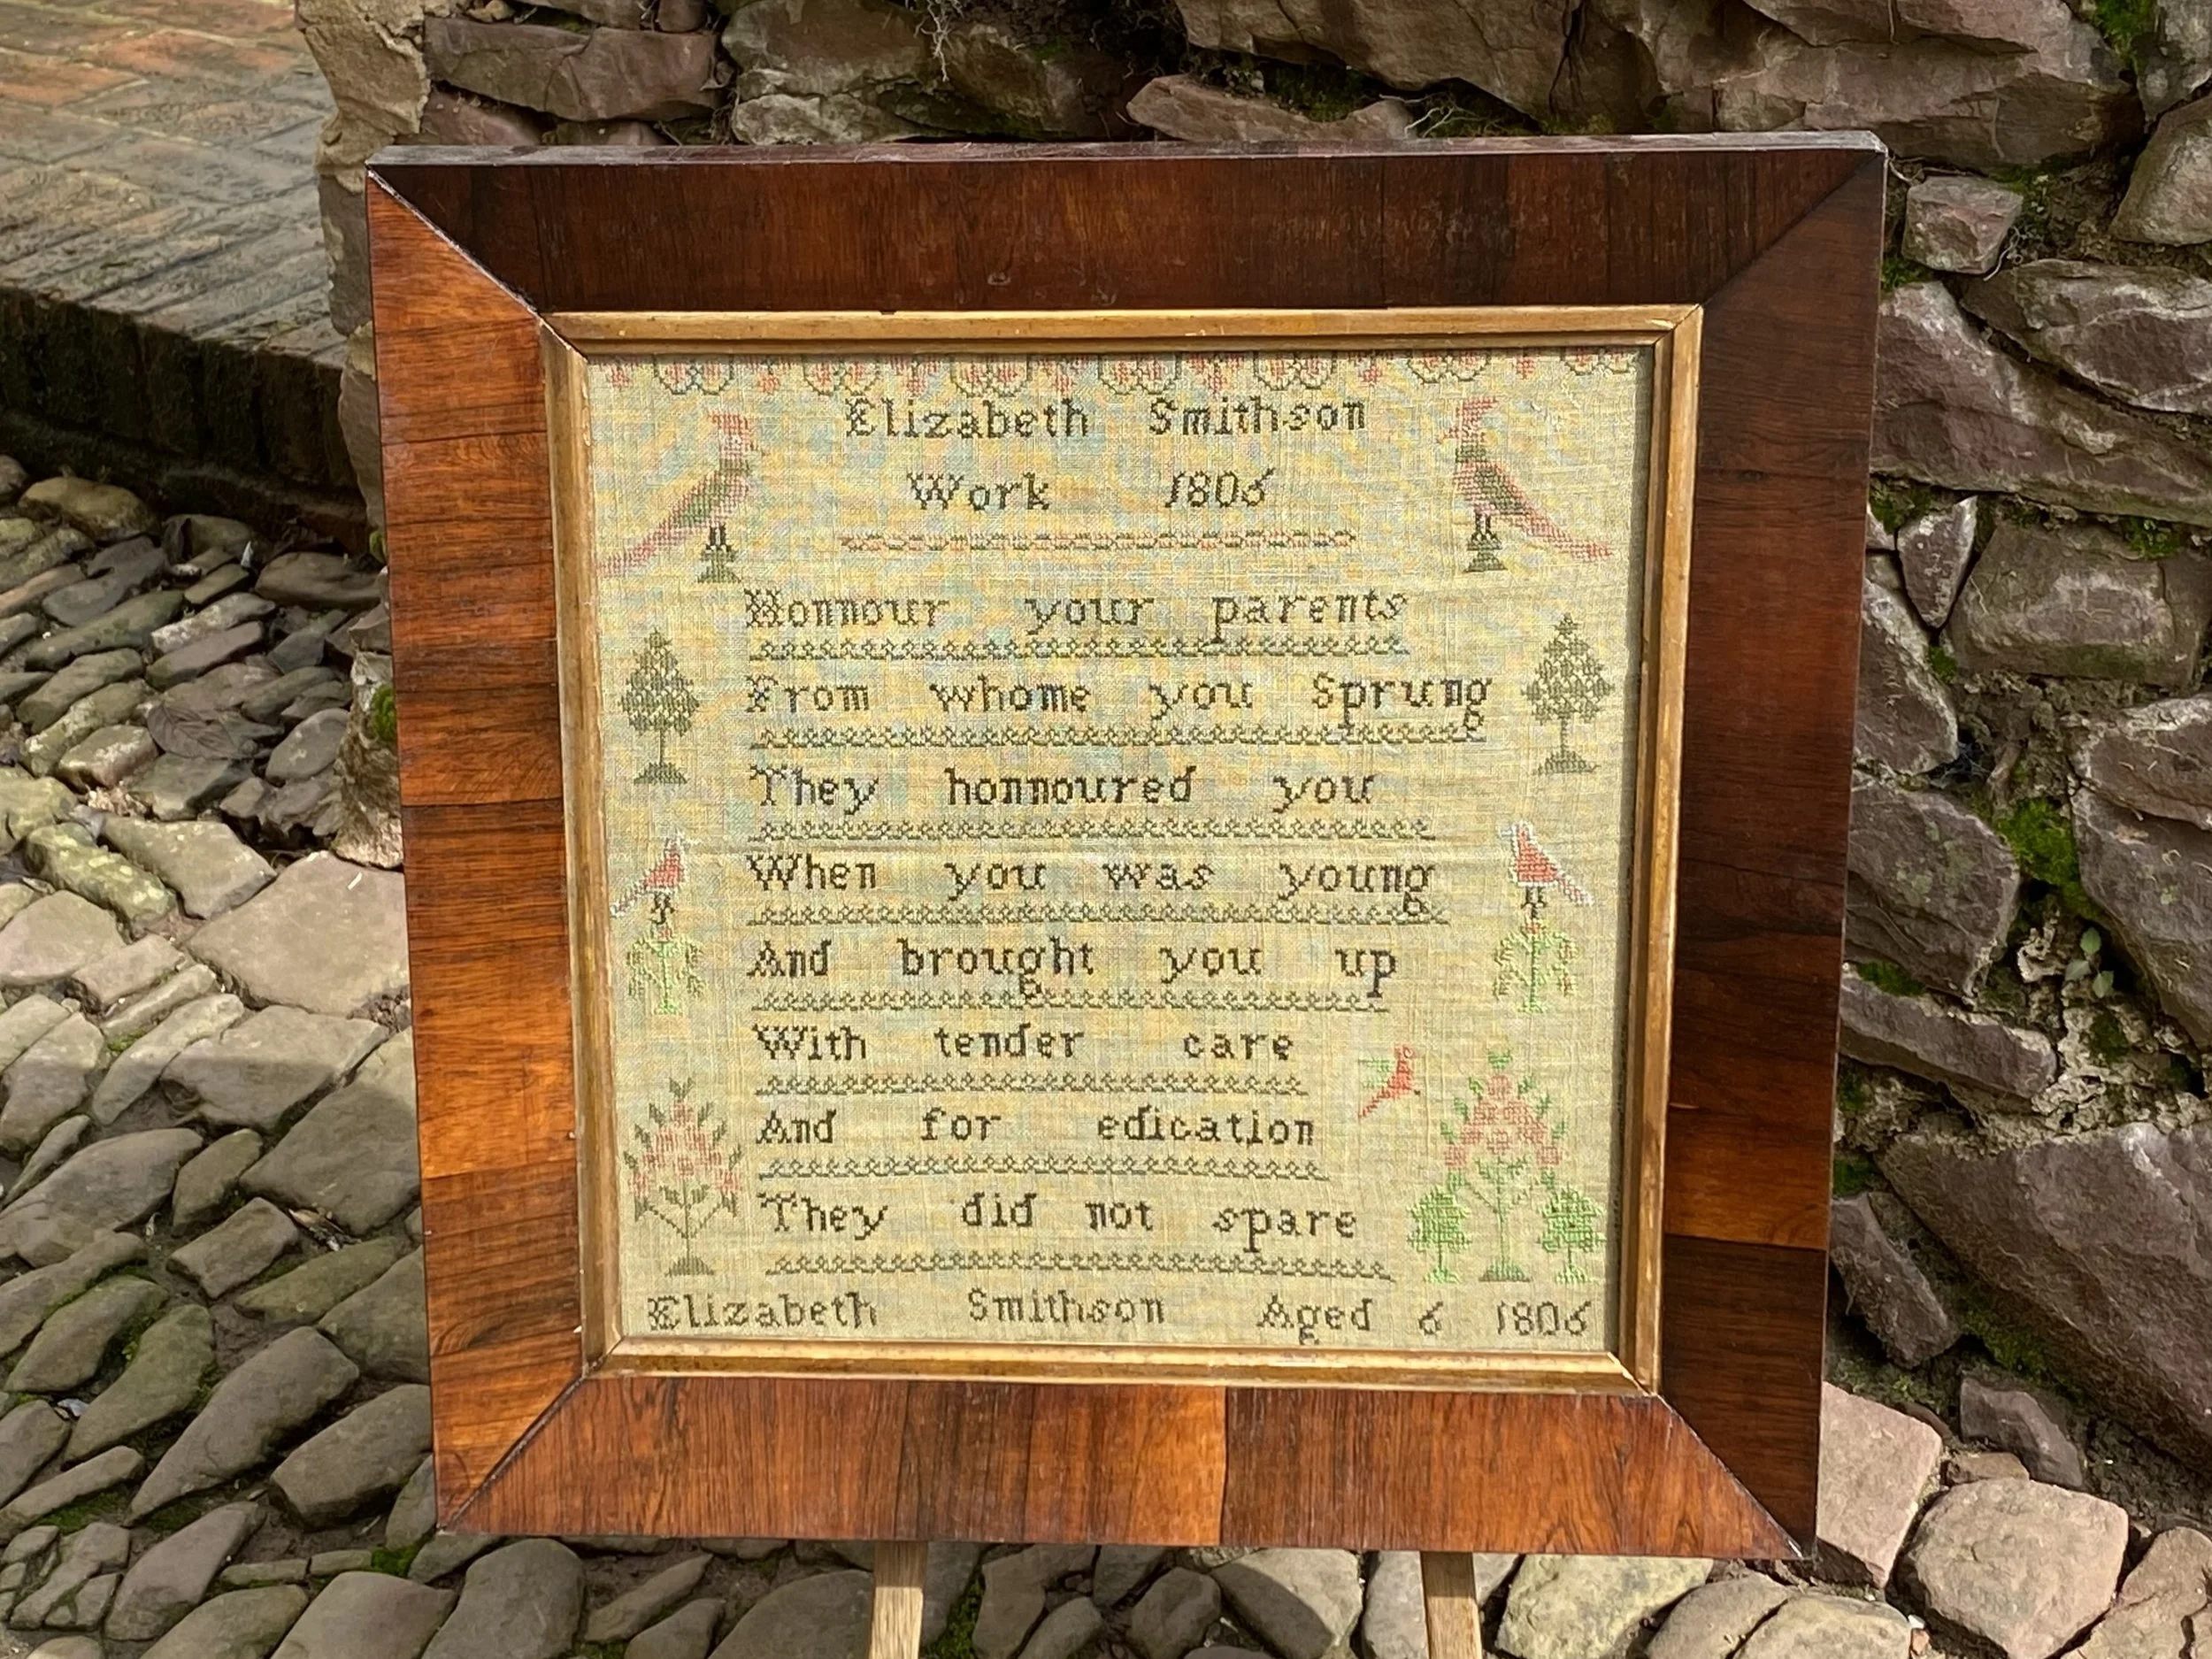 Elizabeth Smithson
Work 1806
Honnour your parents
From whome you Sprung
They honnoured you
When you was young
And brought you up
With tender care
And for edication
They did not spare
Elizabeth Smithson Aged 6 1806